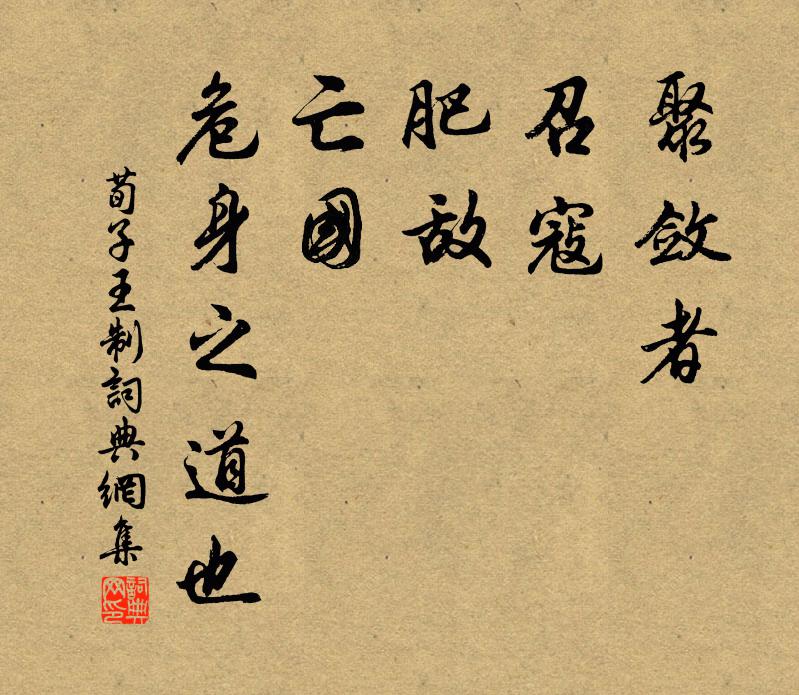 聚斂者
召寇
肥敌
亡國
危身之道也
荀子王制詞典網集
詞典网印